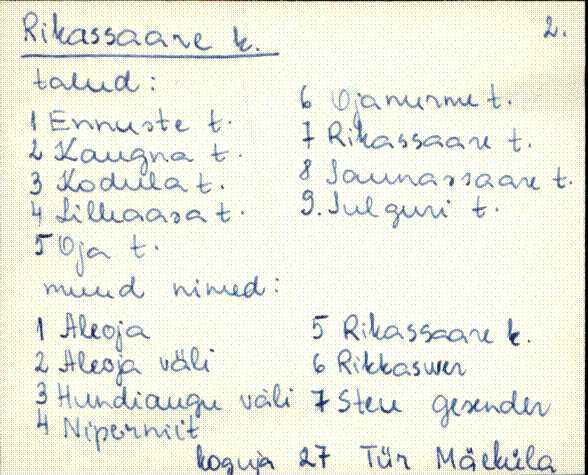 Rikassaare k. 2.
talud:
1 Ennuste t.
2 Kaugna t.
3 Kodula t.
4 Lilleaasa t.
5 Oja t.
6 Ojanurme t.
7 Rikassaare t.
8 Saunassaare t.
9. Sulguri t.
muud nimed:
1 Aleoja
2 Aleoja väli
3 Hundiaugu väli
4 Niperniit
5 Rikassaare k.
6 Rikkaswer
7 Steu gesender
koguja 27 Tür Mäeküla